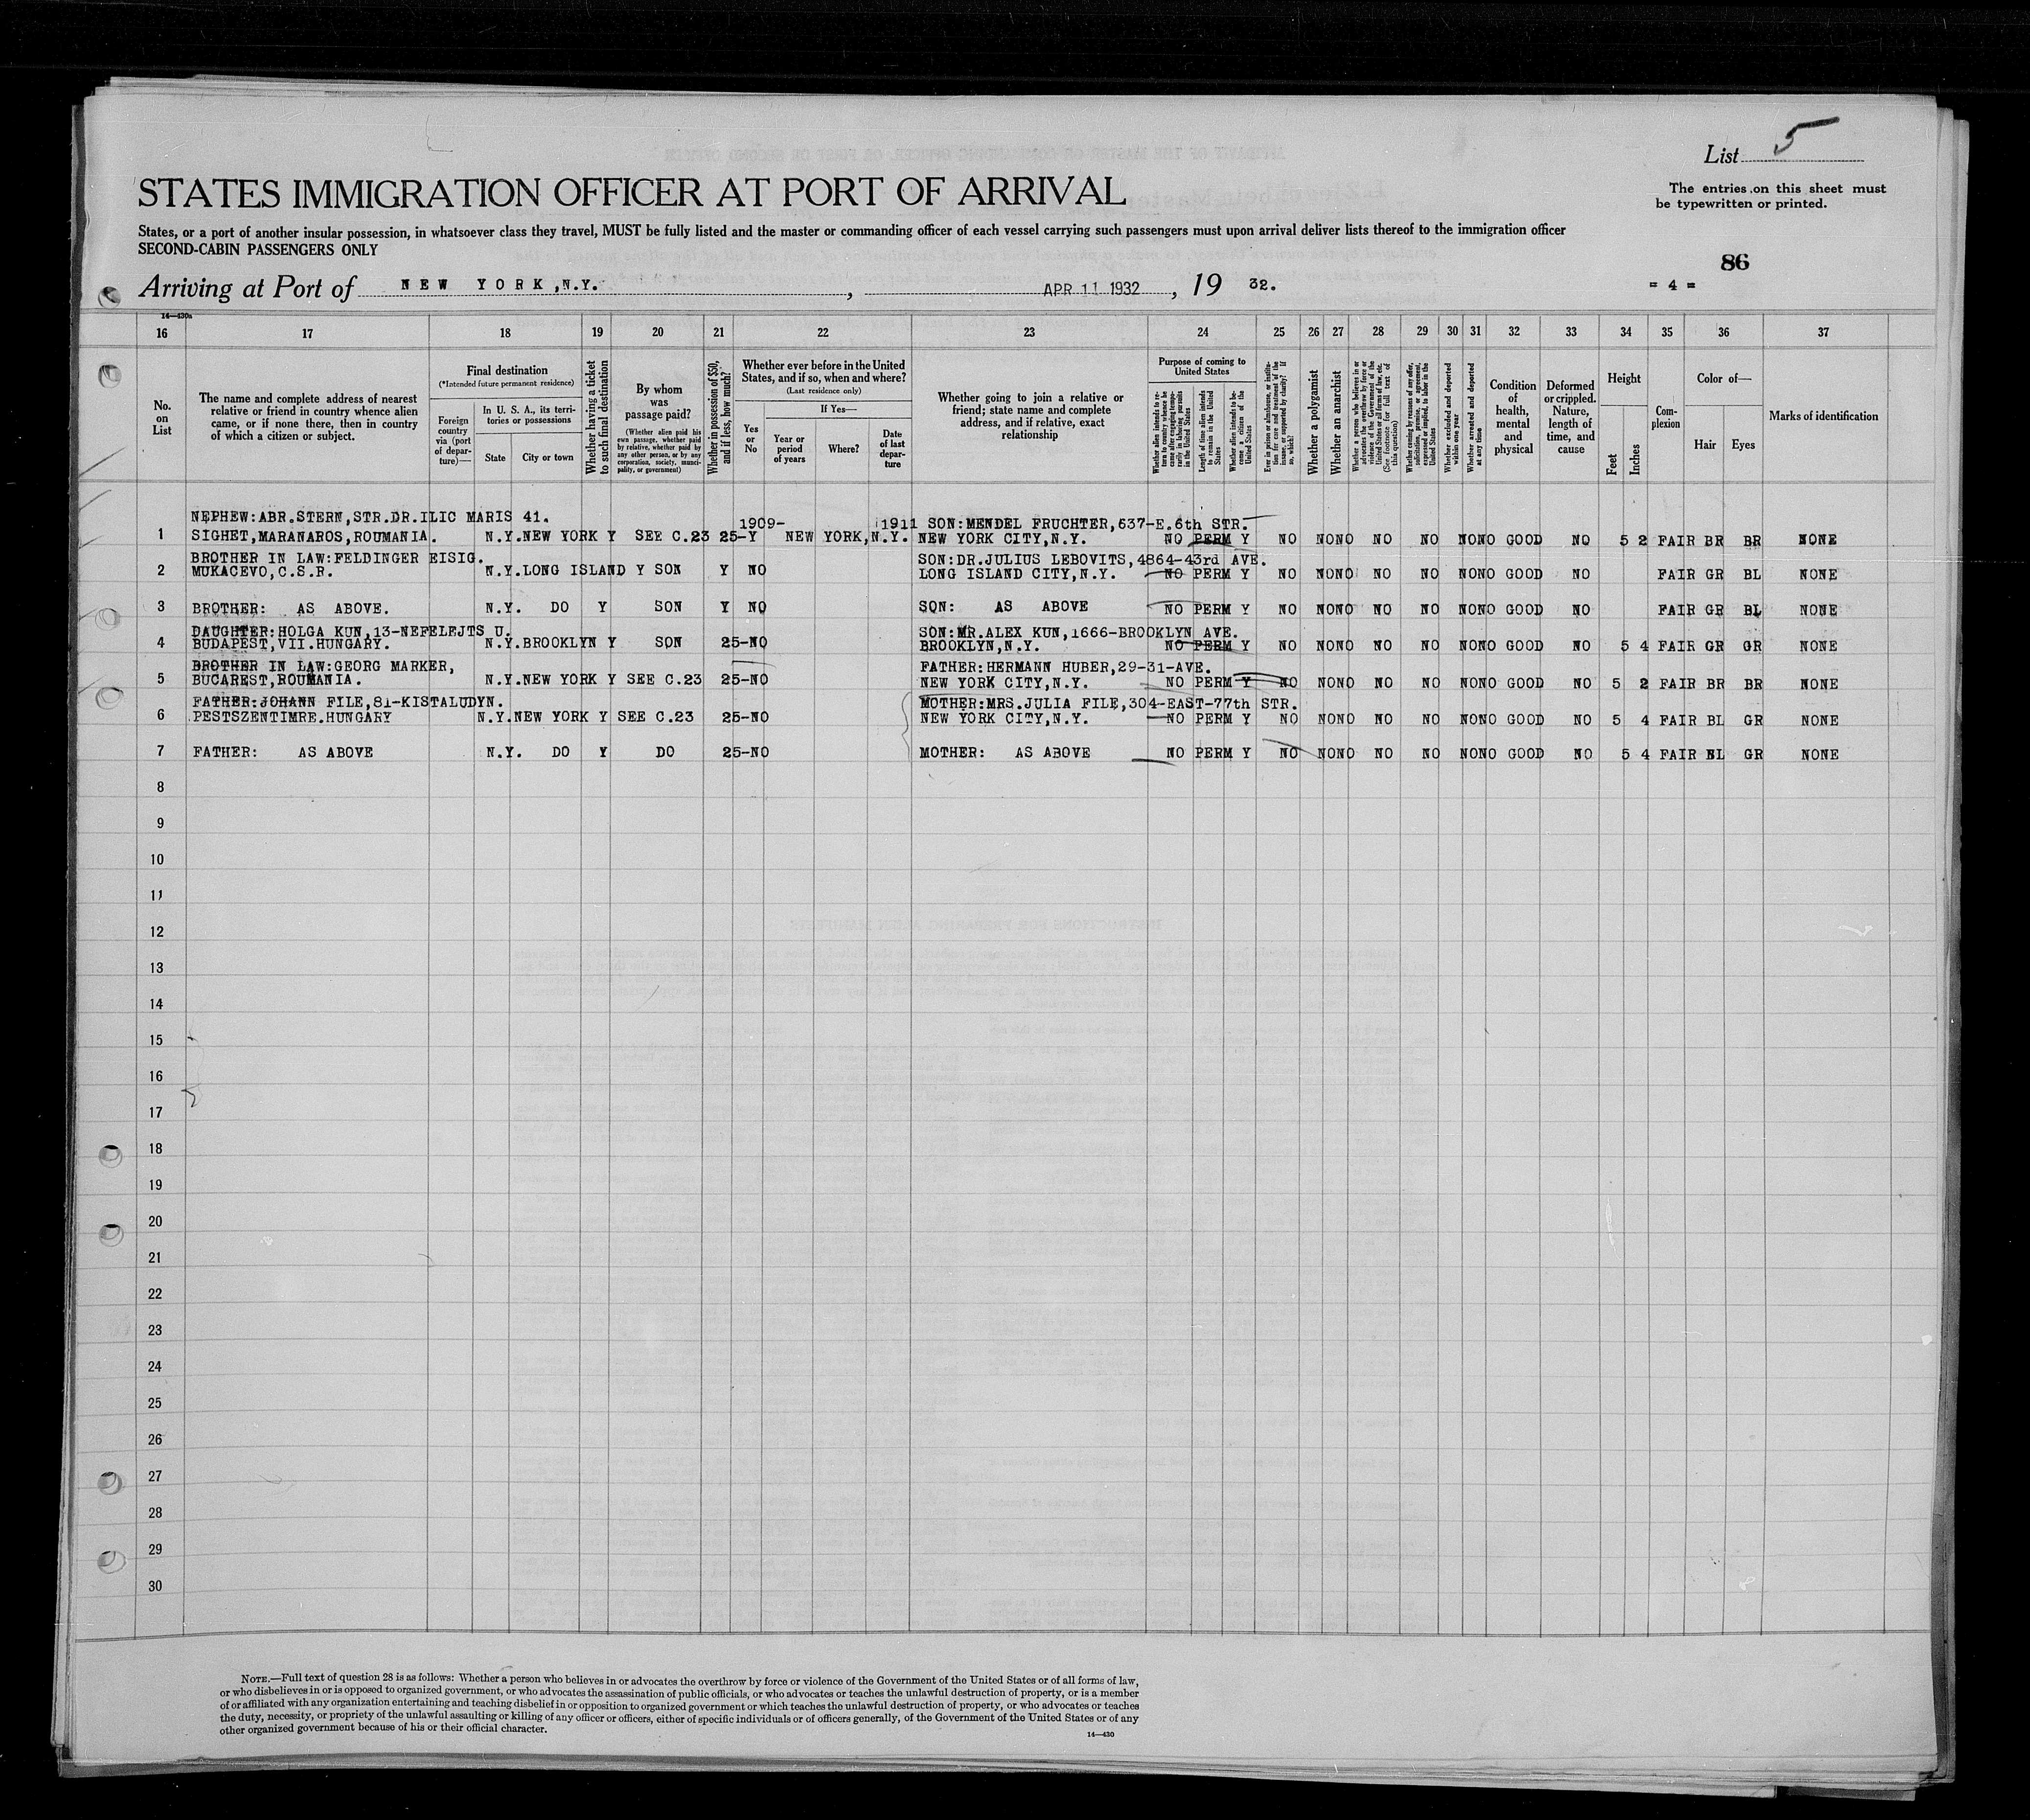 List 5
The entries on this sheet must
be typewritten or printed.
STATES IMMIGRATION OFFICER AT PORT OF ARRIVAL
States, or a port of another insular possession, in whatsoever class they travel, MUST be fully listed and the master or commanding officer of each vessel carrying such passengers must upon arrival deliver lists thereof to the immigration officer
SECOND-CABIN PASSENGERS ONLY
86
Arriving at Port of NEW YORK, N.Y. , APR 11 1932 , 19 32.
= 4 =
14—430a
16 17 18 19 20 21 22 23 24 25 26 27 28 29 30 31 32 33 34 35 36 37
No. on List
The name and complete address of nearest relative or friend in country whence alien came, or if none there, then in country of which a citizen or subject.
Final destination
(*Intended future permanent residence)
Foreign country via (port of departure)—
In U. S. A., its territories or possessions
State
City or town
Whether having a ticket to such final destination
By whom was passage paid?
(Whether alien paid his own passage, whether paid by relative, whether paid by any other person, or by any corporation, society, municipality, or government)
Whether in possession of $50, and if less, how much?
Whether ever before in the United States, and if so, when and where?
(Last residence only)
Yes or No
If Yes—
Year or period of years
Where?
Date of last departure
Whether going to join a relative or friend; state name and complete address, and if relative, exact relationship
Purpose of coming to United States
Whether alien intends to return to country whence he came after engaging temporarily in laboring pursuits in the United States
Length of time alien intends to remain in the United States
Whether alien intends to become a citizen of the United States
Ever in prison or almshouse, or institution for care and treatment of the insane, or supported by charity? If so, which?
Whether a polygamist
Whether an anarchist
Whether a person who believes in or advocates the overthrow by force or violence of the Government of the United States or all forms of law, etc. (See footnote for full text of this question)
Whether coming by reasons of any offer, solicitation, promise, or agreement, expressed or implied, to labor in the United States
Whether excluded and deported within one year
Whether arrested and deported at any time
Condition of health, mental and physical
Deformed or crippled. Nature, length of time, and cause
Height
Feet
Inches
Complexion
Color of—
Hair
Eyes
Marks of identification
NEPHEW:ABR.STERN,STR.DR.ILIC MARIS 41. 1909- 1911 SON:MENDEL FRUCHTER,637-E.6th STR.
1 SIGHET,MARANAROS,ROUMANIA. N.Y. NEW YORK Y SEE C.23 25-Y NEW YORK,N.Y. NEW YORK CITY,N.Y. NO PERM Y NO NO NO NO NO NO NO GOOD NO 5 2 FAIR BR BR NONE
BROTHER IN LAW:FELDINGER EISIG. SON:DR.JULIUS LEBOVITS,4864-43rd AVE.
2 MUKACEVO,C.S.R. N.Y. LONG ISLAND Y SON Y NO LONG ISLAND CITY,N.Y. NO PERM Y NO NO NO NO NO NO NO GOOD NO FAIR GR BL NONE
3 BROTHER: AS ABOVE. N.Y. DO Y SON Y NO SON: AS ABOVE NO PERM Y NO NO NO NO NO NO NO GOOD NO FAIR GR BL NONE
DAUGHTER:HOLGA KUN,13-NEFELEJTS U. SON:MR.ALEX KUN,1666-BROOKLYN AVE.
4 BUDAPEST,VII.HUNGARY. N.Y. BROOKLYN Y SON 25-NO BROOKLYN,N.Y. NO PERM Y NO NO NO NO NO NO NO GOOD NO 5 4 FAIR GR GR NONE
BROTHER IN LAW:GEORG MARKER, FATHER:HERMANN HUBER,29-31-AVE.
5 BUCAREST,ROUMANIA. N.Y. NEW YORK Y SEE C.23 25-NO NEW YORK CITY,N.Y. NO PERM Y NO NO NO NO NO NO NO GOOD NO 5 2 FAIR BR BR NONE
FATHER:JOHANN FILE,81-KISTALUDYN. MOTHER:MRS.JULIA FILE,304-EAST-77th STR.
6 PESTSZENTIMRE.HUNGARY N.Y. NEW YORK Y SEE C.23 25-NO NEW YORK CITY,N.Y. NO PERM Y NO NO NO NO NO NO NO GOOD NO 5 4 FAIR BL GR NONE
7 FATHER: AS ABOVE N.Y. DO Y DO 25-NO MOTHER: AS ABOVE NO PERM Y NO NO NO NO NO NO NO GOOD NO 5 4 FAIR BL GR NONE
8
9
10
11
12
13
14
15
16
17
18
19
20
21
22
23
24
25
26
27
28
29
30
NOTE.—Full text of question 28 is as follows: Whether a person who believes in or advocates the overthrow by force or violence of the Government of the United States or of all forms of law,
or who disbelieves in or is opposed to organized government, or who advocates the assassination of public officials, or who advocates or teaches the unlawful destruction of property, or is a member
of or affiliated with any organization entertaining and teaching disbelief in or opposition to organized government or which teaches the unlawful destruction of property, or who advocates or teaches
the duty, necessity, or propriety of the unlawful assaulting or killing of any officer or officers, either of specific individuals or of officers generally, of the Government of the United States or of any
other organized government because of his or their official character.
14—430